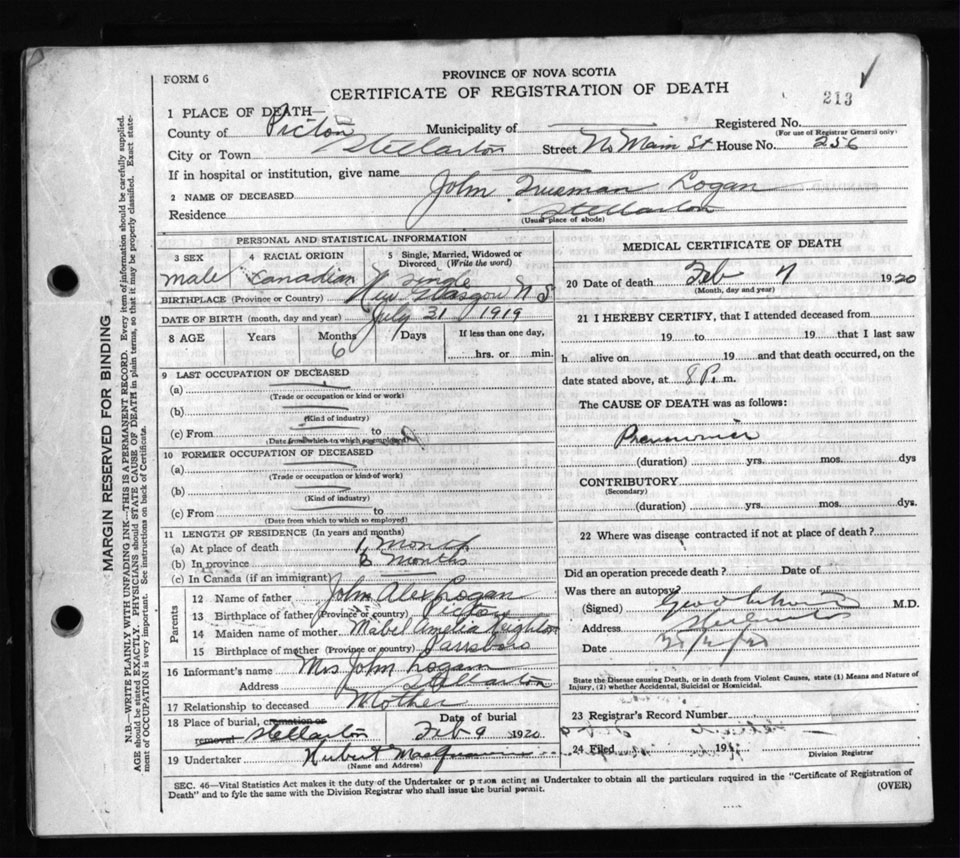 FORM 6
PROVINCE OF NOVA SCOTIA
CERTIFICATE OF REGISTRATION OF DEATH
213
1 PLACE OF DEATH—
County of Pictou Municipality of Registered No.
(For use of Registrar General only)
City or Town Stellarton Street N. Main St House No. 256
If in hospital or institution, give name
2 NAME OF DECEASED John Trueman Logan
Residence Stellarton
(Usual place of abode)
PERSONAL AND STATISTICAL INFORMATION
3 SEX 4 RACIAL ORIGIN 5 Single, Married, Widowed or Divorced (Write the word)
Male Canadian Single
BIRTHPLACE (Province or Country) New Glasgow N S
DATE OF BIRTH (month, day and year) July 31 1919
8 AGE Years Months Days If less than one day,
6 7 hrs. or min.
9 LAST OCCUPATION OF DECEASED
(a)
(Trade or occupation or kind or work)
(b)
(Kind of industry)
(c) From to
(Date from which to which so employed)
10 FORMER OCCUPATION OF DECEASED
(a)
(Trade or occupation or kind of work)
(b)
(Kind of industry)
(c) From to
(Date from which to which so employed)
11 LENGTH OF RESIDENCE (In years and months)
(a) At place of death 1 Month
(b) In province Months
(c) In Canada (if an immigrant)
Parents
12 Name of father John Alex Logan
13 Birthplace of father (Province or country) Pictou
14 Maiden name of mother Mabel Amelia Leighton
15 Birthplace of mother (Province or country) Parrsboro
16 Informant's name Mrs John Logan
Address Stellarton
17 Relationship to deceased Mother
18 Place of burial, cremation or removal Stellarton Date of burial Feb 9 1920
19 Undertaker Hubert
(Name and Address)
MEDICAL CERTIFICATE OF DEATH
20 Date of death Feb 7 1920
(Month, day and year)
21 I HEREBY CERTIFY, that I attended deceased from
19 to 19 that I last saw
h alive on 19 and that death occurred, on the
date stated above, at 8 P. m.
The CAUSE OF DEATH was as follows:
Pneumonia
(duration) yrs. mos. dys
CONTRIBUTORY
(Secondary)
(duration) yrs. mos. dys.
22 Where was disease contracted if not at place of death?
Did an operation precede death? Date of
Was there an autopsy
(Signed) M.D.
Address Stellarton
Date
State the Disease causing Death, or in death from Violent Causes, state (1) Means and Nature of Injury, (2) whether Accidental, Suicidal or Homicidal.
23 Registrar's Record Number
24 Filed 191
Division Registrar
SEC. 46—Vital Statistics Act makes it the duty of the Undertaker or person acting as Undertaker to obtain all the particulars required in the "Certificate of Registration of
Death" and to fyle the same with the Division Registrar who shall issue the burial permit.
(OVER)
MARGIN RESERVED FOR BINDING
N.B.—WRITE PLAINLY WITH UNFADING INK—THIS IS A PERMANENT RECORD. Every item of information should be carefully supplied.
AGE should be stated EXACTLY. PHYSICIANS should STATE CAUSE OF DEATH in plain terms, so that it may be properly classified. Exact state-
ment of OCCUPATION is very important. See instructions on back of Certificate.